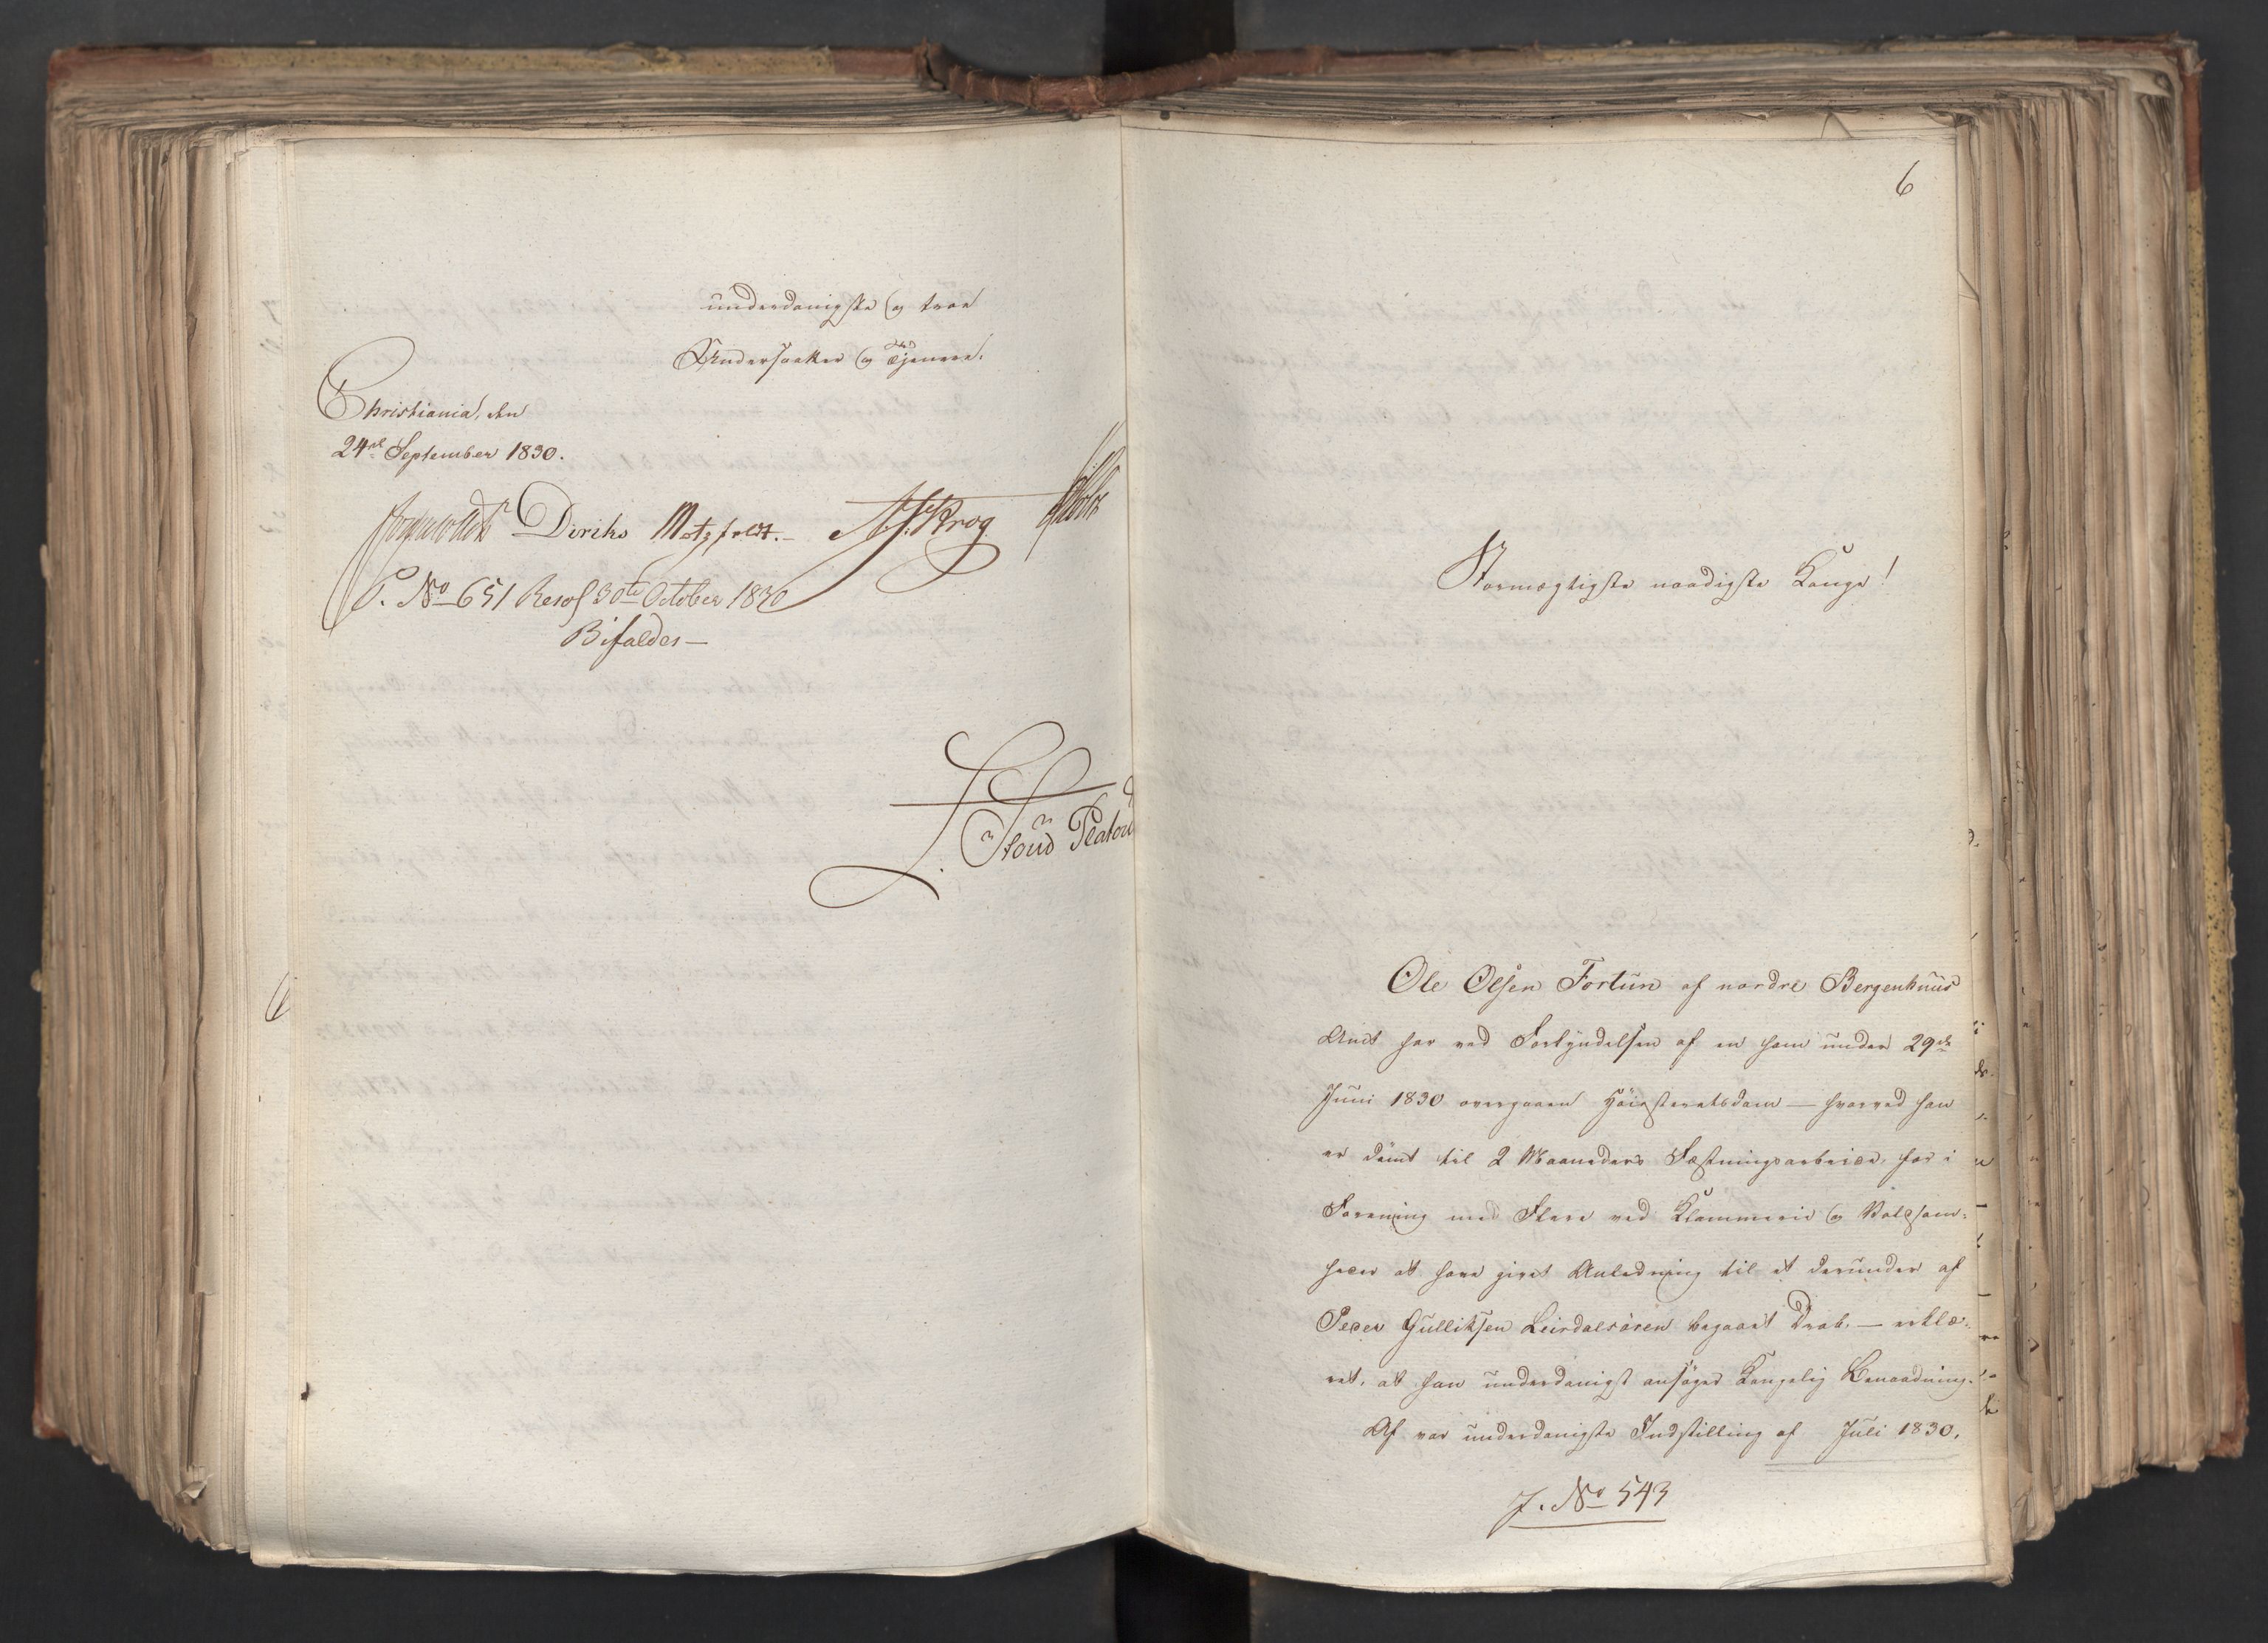 underdanigste og troe
Undersaatter og Tjenere.
Christiania, den
24de September 1830.
Diriks Motzfeldt.- Krog
P. No 651 Resol 30te October 1830
Bifaldes—
6
6
Stormægtigste naadigste Konge!
Ole Olsen Fortun af nordre Bergenhuus
Amt har ved Forkyndelsen af en ham under 29de
Juni 1830 overgaaen Høiesteretsdom — hvorved han
er dømt til 2 Maaneders Fæstningsarbeide, for i
Forening med Flere ved Klammerie og Voldsom-
heder at have givet Anledning til et derunder af
Peder Gulliksen Leirdalsören begaaet Drab, — erklæ-
ret, at han underdanigst ansøger Kongelig Benaadning.
Af vor underdanigste Indstilling af Juli 1830,
J. No 543